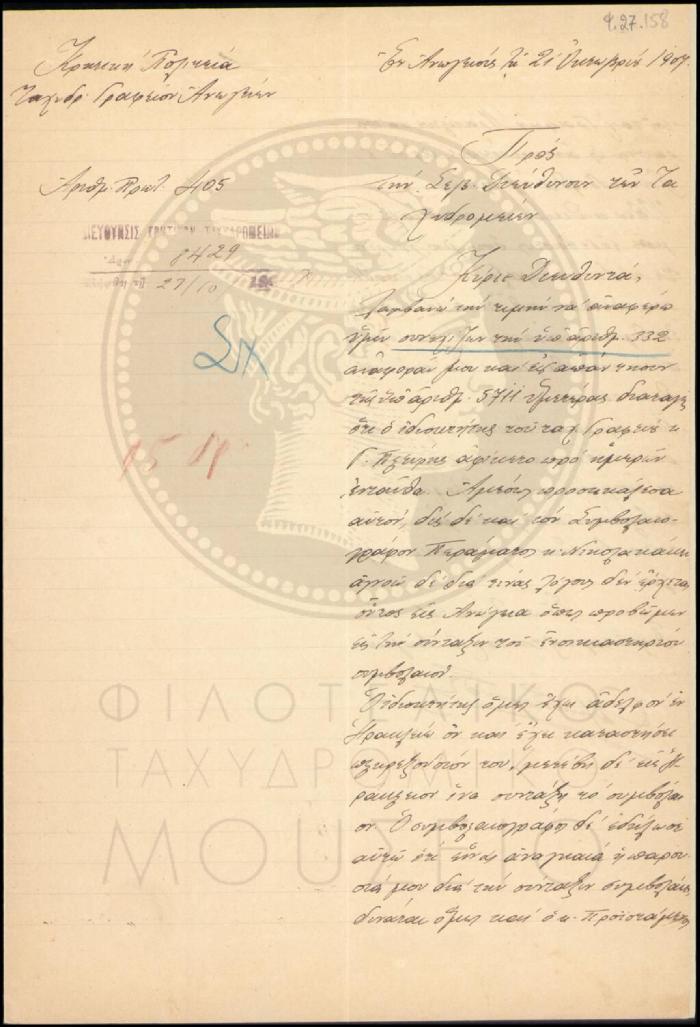 φ.27.158
Κρητική Πολιτεία
Ταχυδρ. Γραφείον Ανωγείων
Εν Ανωγείοις τη 21 Οκτωβρίου 1907
Αριθμ. Πρωτ. 405
Προς
την Σεβ. Διεύθυνσιν των Τα
χυδρομείων
ΔΙΕΥΘΥΝΣΙΣ ΚΡΗΤΙΚΩΝ ΤΑΧΥΔΡΟΜΕΙΩΝ
8429
27/10 190
Κύριε Διευθυντά,
Λαμβάνω την τιμήν να αναφέρω
υμίν συνεχίζων την υπ' αριθμ. 332
αναφοράν μου και εις απάντησιν
της υπ' αριθμ. 5711 υμετέρας διαταγής
ότι ο ιδιοκτήτης του ταχ. Γραφείου κ.
Γ. αφίκετο προ ημερών
ενταύθα. Αμέσως προσεκάλεσα
αυτόν, δις δε και τον Συμβολαιο-
γράφον Περάματος κ. Νικολακάκην
αγνοώ δε διά τίνας λόγους δεν έρχεται
ούτος εις Ανώγεια όπως προβώμεν
εις την σύνταξιν του ενοικιαστηρίου
συμβολαίου.
Ο ιδιοκτήτης όμως έχει αδελφόν εν
Ηρακλείω ον και έχει καταστήσει
πληρεξούσιόν του, μετέβη δε εις Η
ράκλειον ίνα συντάξη το συμβόλαι
ον. Ο συμβολαιογράφος δε εδήλωσε
αυτώ ότι είναι αναγκαία η παρου
σία μου διά την σύνταξιν συμβολαίου,
δύναται όμως και ο κ. Προϊστάμενος
15
ΦΙΛΟΤΕΛΙΚΟ
ΤΑΧΥΔΡΟΜΙΚΟ
ΜΟΥΣΕΙΟ